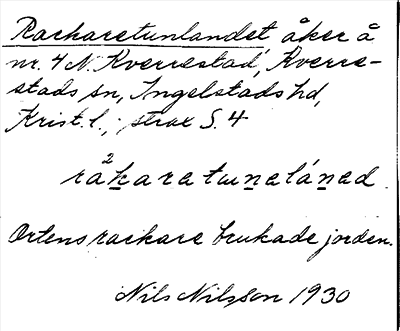 Rackaretunlandet åker å
nr. 4 N. Kverrestad, Kverre-
stads sn, Ingelstads hd,
Krist. l., strax S. 4
2
råkaretuneláned.
Ortens rackare brukade jorden.
Nils Nilsson 1930